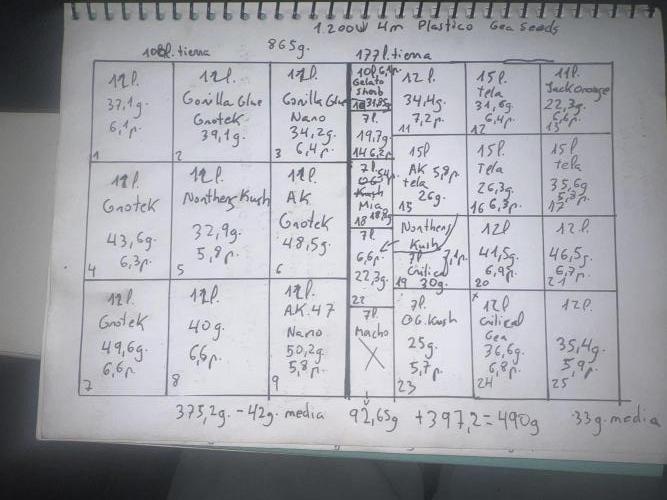 1.200W 4m Plastico Gea Seeds
108l. tierra 865g. 177l. tierra
12l.
37,1g
6,1p.
1
12l.
Gorilla Glue
Grotek
39,1g.
2
12l.
Gorilla Glue
Nano
34,2g.
6,4p.
3
10l. 6,1p.
Gelato
Sherb
10 31,85g
12l.
34,4g.
7,2p.
11
15l.
tela
31,6g.
6,4p.
12
11l.
Jack Orange
22,3g.
6,6p.
13
12l.
Grotek
43,6g.
6,3p.
4
12l.
Northern Kush
32,9g.
5,8p.
5
12l.
AK
Grotek
48,5g.
6
7l.
19,7g.
14 6,2p.
15l
AK 5,8p.
tela
26g.
15
15l.
Tela
26,3g.
16 6,3p.
15l
tela
35,6g
5,8p.
17
7l.
OG
Kush
Mia
18 18,8g
Northern
Kush
7l. 7,1p.
Critical
19 30g.
12l
41,5g.
6,9p.
20
12l.
46,5g.
6,7p.
21
12l.
Grotek
49,6g.
6,6p.
7
12l.
40g.
6,6p.
8
12l.
AK.47
Nano
50,2g.
5,8p.
9
7l.
6,6p.
22,3g.
22
7l.
Macho
7l.
OG.Kush
25g.
5,7p.
23
12l
Critical
Gea
36,6g.
6,8p.
24
12l.
35,4g.
5,9p.
25
375,2g. - 42g. media 92,65g + 397,2 = 490g 33g. media